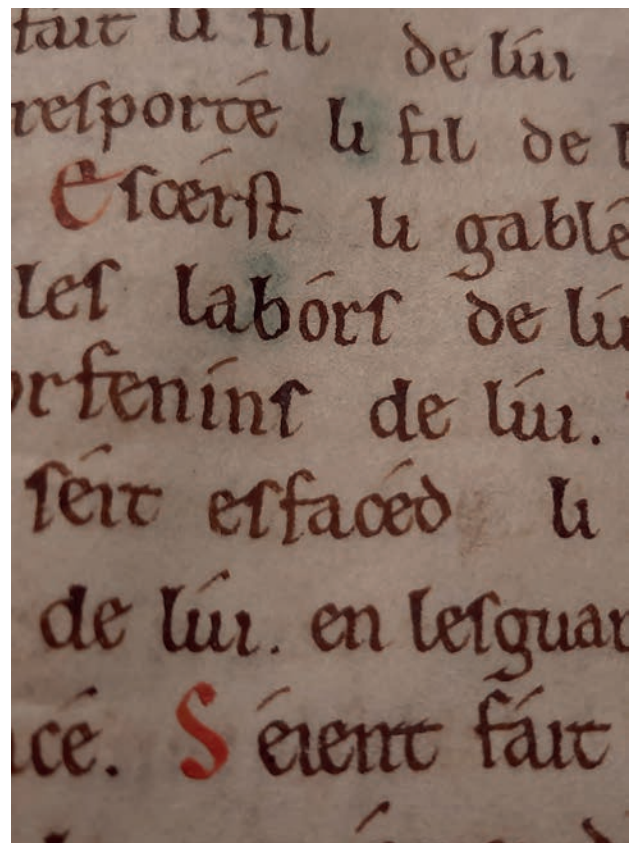 fait li fil de lúi
resporté li fil de l
escérst li gablé
les labórs de lúi
orfeníns de lúi.
séit esfacéd li
de lúi. en lesguar
cé. Séient fáit